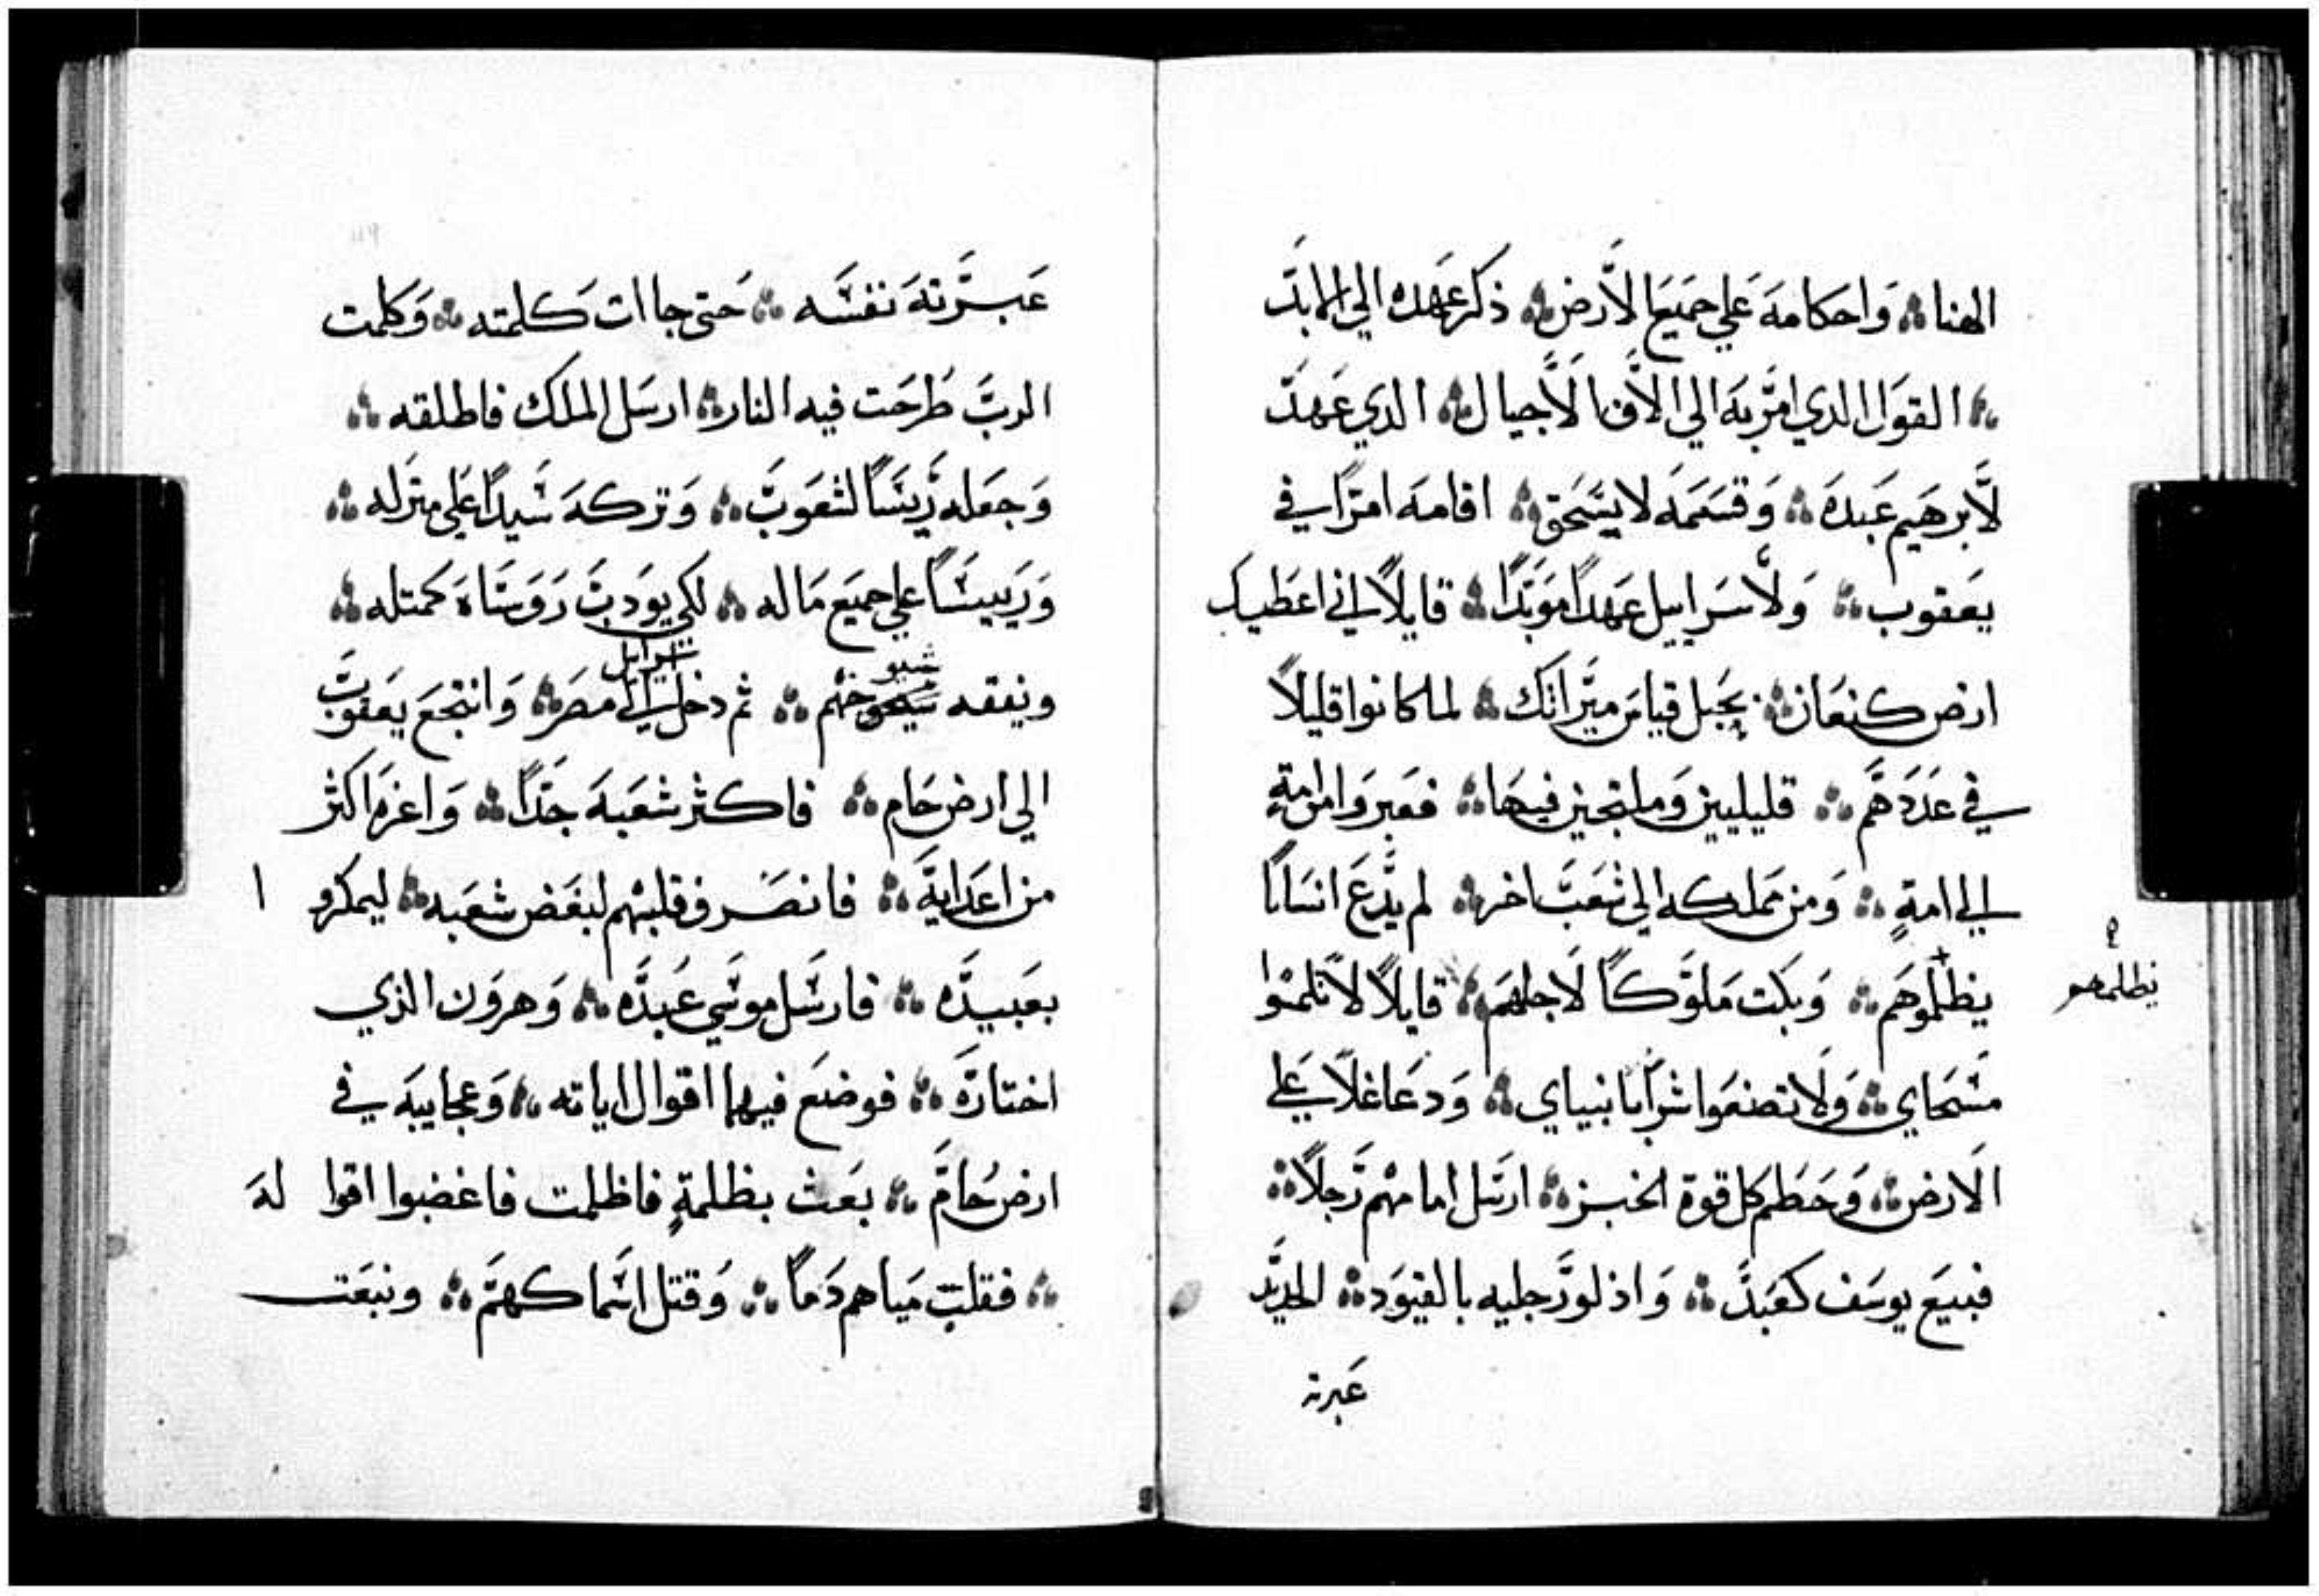 الهنا ۞ وَاحكامهَ عَلي جَميَع الاَرض ۞ ذكر عَهده الي الابدَ
۞ القوَل الدي امَر بهَ الي الاَف الاَجيال ۞ الدي عَهدَ
لاَبرهَيم عَبدهَ ۞ وَقسَمهَ لايسَحَق ۞ اقامهَ امرًا في
يَعقوب ۞ وَلاَسَراييل عَهدًا موَبدًا ۞ قايلاً اني اعَطيك
ارض كنعَان ۞ حَبل قياسَ ميَراثك ۞ لما كانوا قليلاً
في عَدَدهَم ۞ قليليين وَملتجين فيهَا ۞ فعَبروَا من امةٍ
الي امةٍ ۞ وَمن مَملكه الي شعَبَ اخر ۞ لم يدَعَ انسَانًا
يظلموهَم ۞ وَبكت مَلوَكاً لاَجلهَم ۞ قايلاً لاَ تلمسَوا
يظلمهم
مَسَحاي ۞ وَلاَ تصنعَوا شرًا بانبياي ۞ وَدعَا غلاَ عَلي
الاَرض ۞ وَحَطم كل قوة الخبز ۞ ارسَل امامهم رَجلاً ۞
فبيعَ يوسَف كعَبدَ ۞ وَاذلو رَجليه بالقيوَد ۞ الحديَد
عَبرت
عَبَرتهَ نفسَه ۞ حَتي جاات كَلمته ۞ وَكلمت
الربَ طَرحَت فيه النار ۞ ارسَل الملك فاطلقه ۞
وَجعَله رَيسَاً لشعَوبَ ۞ وَتركهَ سَيدًا عَلي منَزله ۞
وَرَييسَاً علي جميَع مَاله ۞ لكي يوَدبَ رَوَسَاهَ كمتله ۞
شيو سَرايل
ويفقه خهم ۞ ثم دخل اسرايل مصَر ۞ وَانتجَعَ يَعقوبَ
الي ارض حَام ۞ فاكثر شعَبهَ جَدًا ۞ وَاعَزهَ اكثر
من اعَدايهَ ۞ فانصَرف قلبهم لبغَض شعَبه ۞ ليمكرو ا
بعَبيدَه ۞ فارسَل موسَي عَبدَه ۞ وَهروَن الذي
اختارَه ۞ فوضَع فيهما اقوال اياته ۞ وَعجَايبهَ في
ارض حَامَ ۞ بعَث بظلمةٍ فاظلمت فاغضبوا اقوا لهَ
۞ فقلبَ مَياهم دَماً ۞ وَقتل اسَماكهمَ ۞ ونبعَت